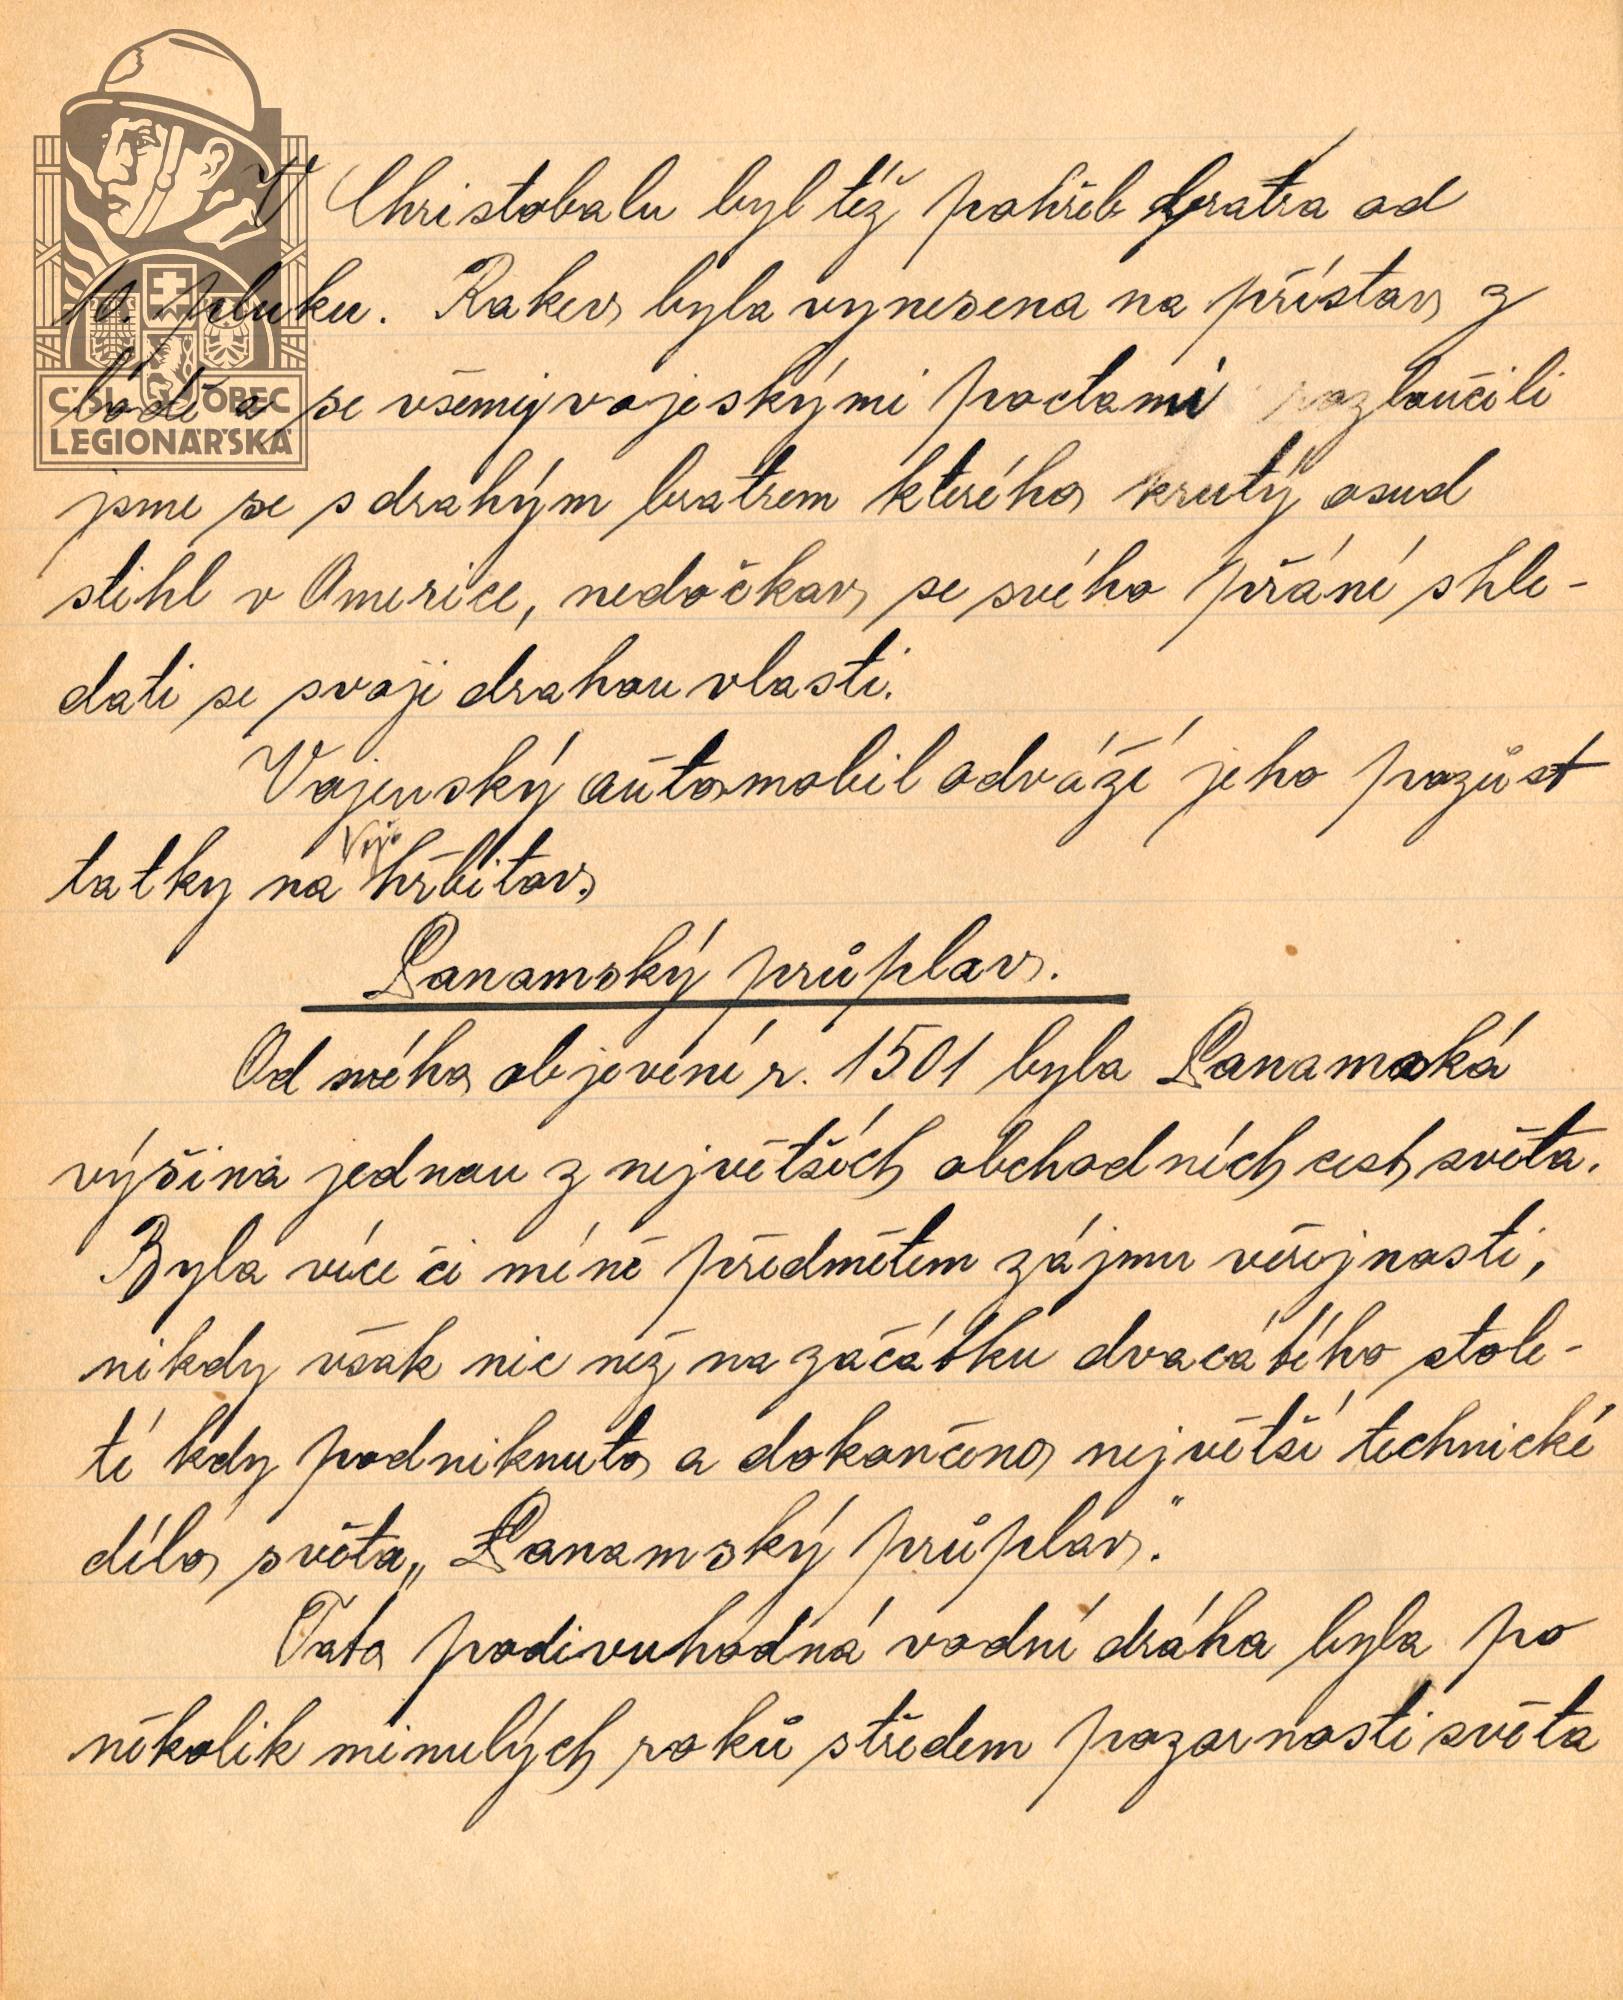 V Christobalu byl též pohřeb bratra od
10. pluku. Rakev byla vynesena na přístav z
lodě a se všemi vojeskými poctami rozloučili
jsme se s drahým bratrem kterého krutý osud
stihl v Americe, nedočkav se svého přání shle-
dati se svoji drahou vlasti.
Vojenský automobil odváží jeho pozůst
Voj.
tatky na hřbitov.
Panamský průplav.
Od svého objevení r. 1501 byla Panamská
výšina jednou z největších obchodních cest světa.
Byla více či méně předmětem zájmu veřejnosti,
nikdy však nic než na začátku dvacátého stole-
tí kdy podniknuto a dokončeno největší technické
dílo světa „Panamský průplav."
Tato podivuhodná vodní dráha byla po
několik minulých roků středem pozornosti světa
ČSL. OBEC
LEGIONÁŘSKÁ